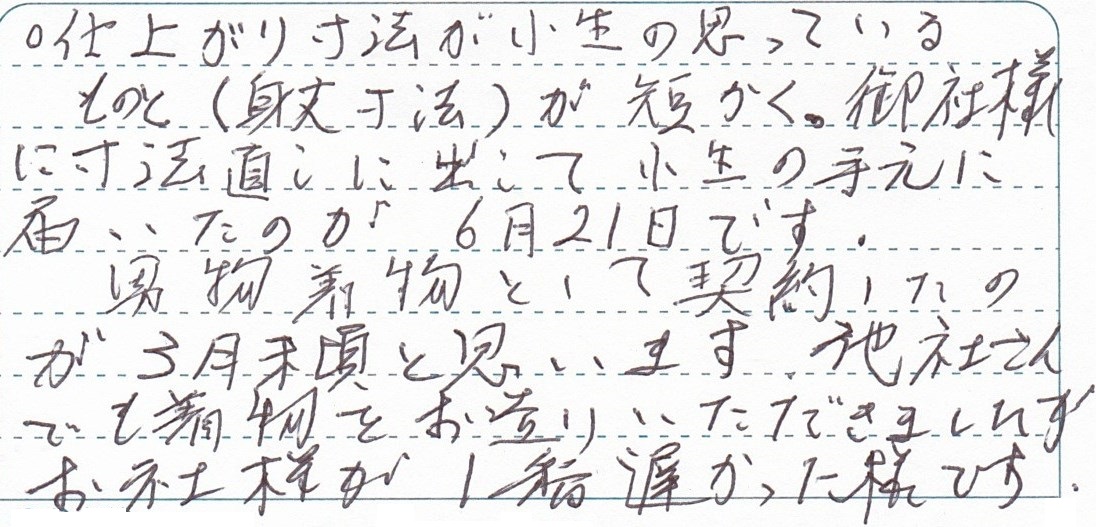 ○仕上がり寸法が小生の思っている
ものと(身丈寸法)が短かく。御社様
に寸法直しに出して小生の手元に
届いたのが 6月21日です.
男物着物として契約したの
が3月末頃と思います.他社さん
でも着物をお造りいただきましれず
お社様が1番遅かった様です.